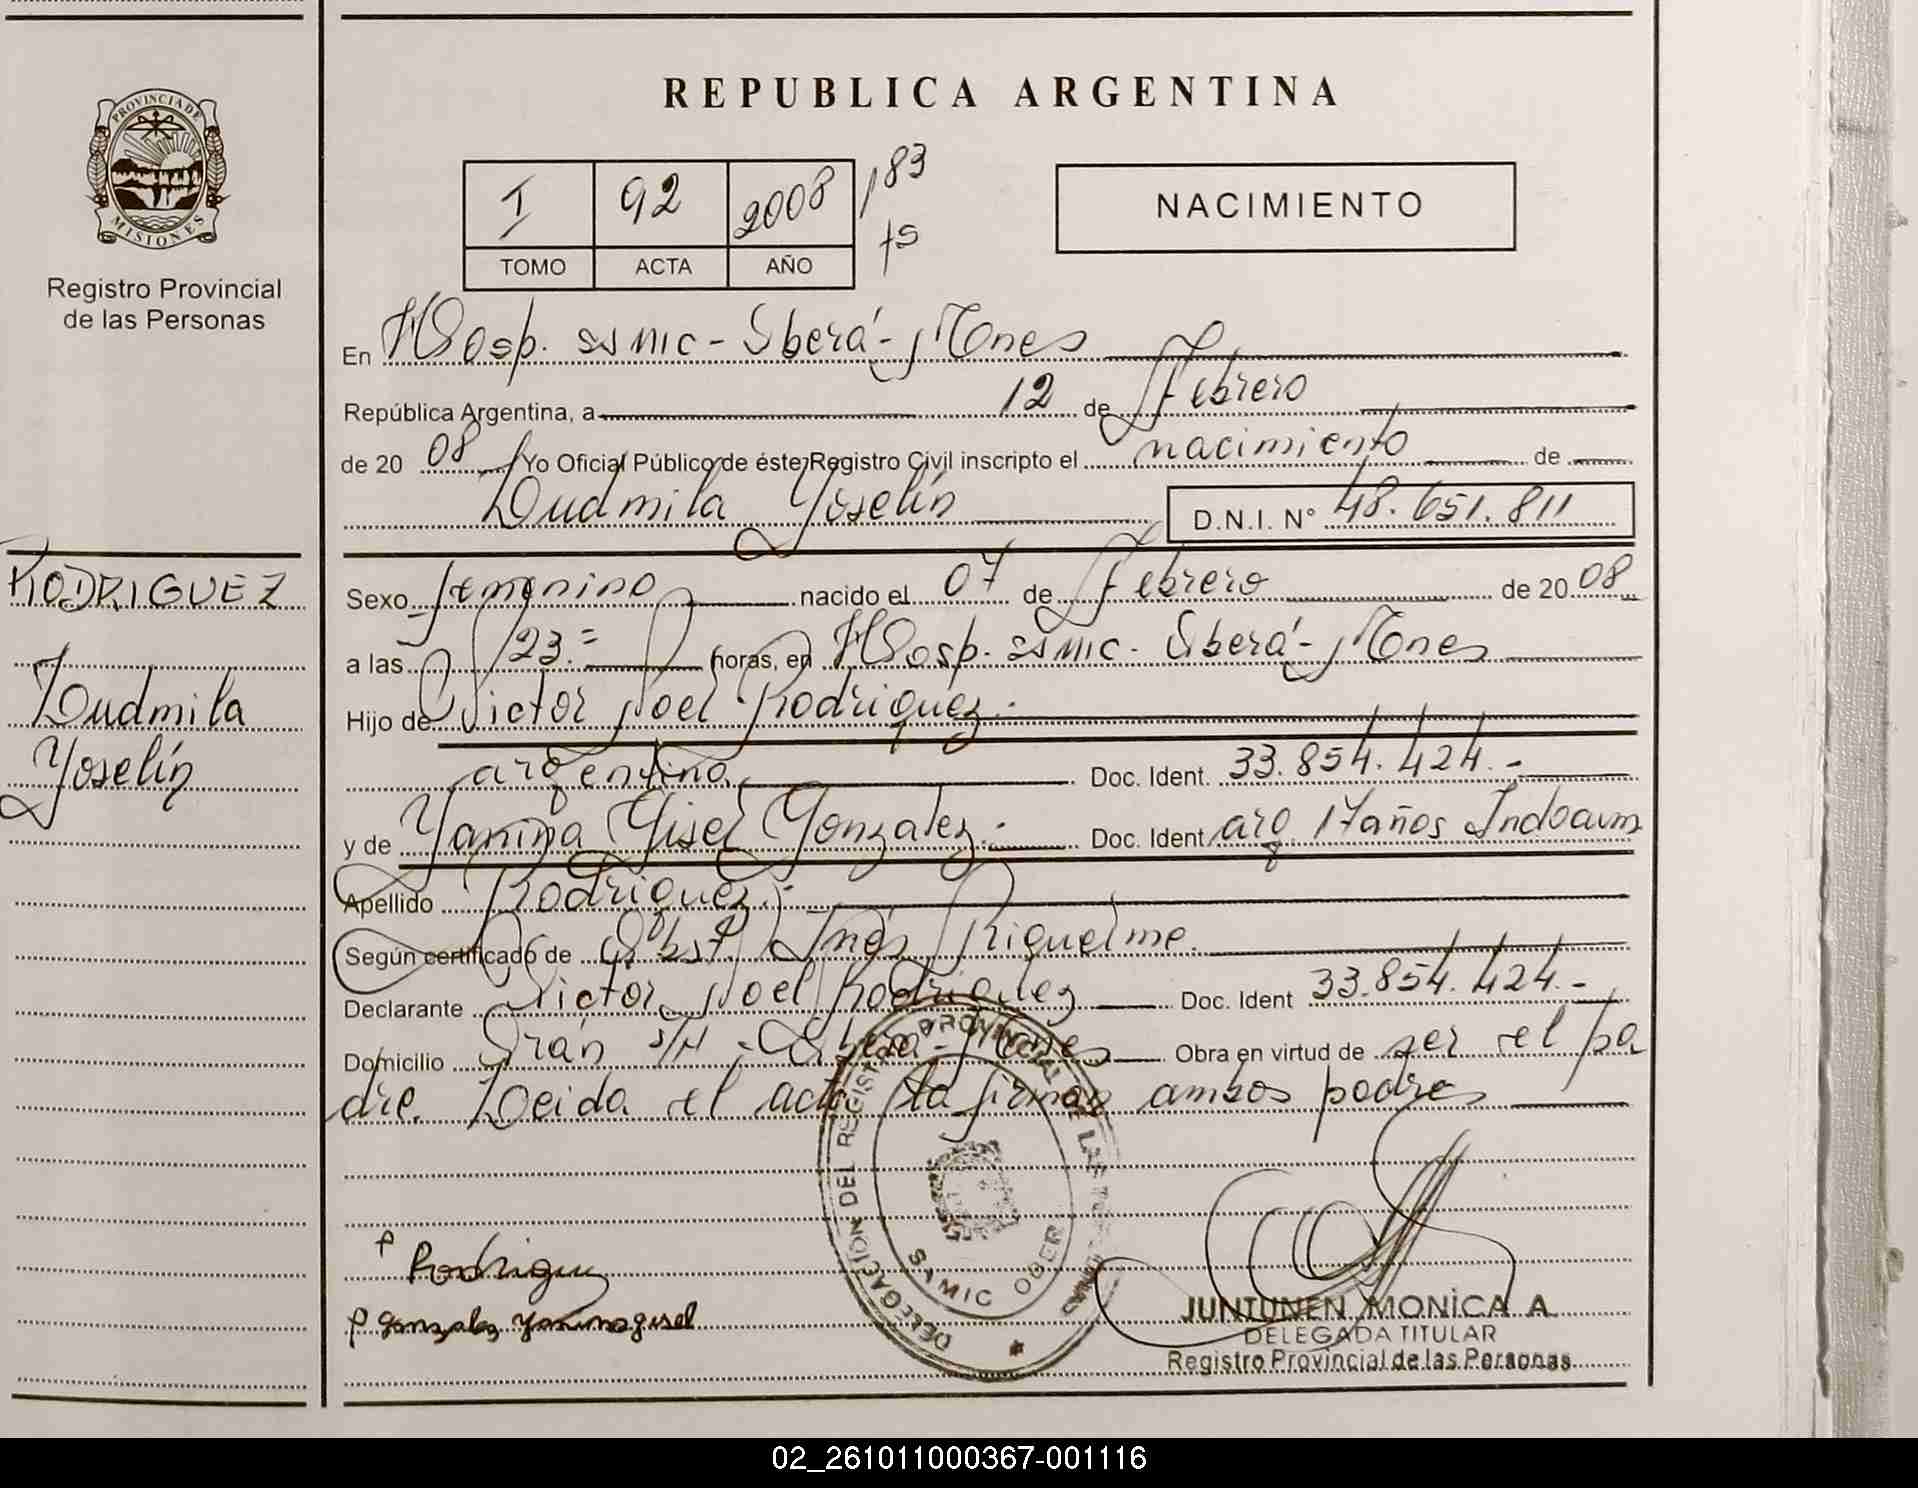 REPUBLICA ARGENTINA
PROVINCIA DE
MISIONES
Registro Provincial
de las Personas
I 92 2008 / 83
TOMO ACTA AÑO
NACIMIENTO
En Hosp. SAMIC - Oberá - Mnes
República Argentina, a 12 de Febrero
de 20 08 Yo Oficial Público de éste Registro Civil inscripto el nacimiento de
Ludmila Yoselín D.N.I. N° 48.651.811
RODRIGUEZ
Ludmila
Yoselín
Sexo femenino nacido el 07 de Febrero de 20 08
a las 23.= horas, en Hosp. SAMIC - Oberá - Mnes
Hijo de Victor Noel Rodriguez.-
argentino, Doc. Ident. 33.854.424.-
y de Yanina Gisel Gonzalez.- Doc. Ident arg 17 años Indoaum
Apellido Rodriguez.-
Según certificado de Obst. Inés Riquelme.
Declarante Victor Noel Rodriguez Doc. Ident 33.854.424.-
Domicilio Orán s/n - Oberá - Mnes Obra en virtud de ser el pa
dre. Leida el acta la firman ambos padres
P Rodriguez
P Gonzalez Yanina gisel
DELEGACIÓN DEL REGISTRO PROVINCIAL DE LAS PERSONAS
SAMIC OBERA
JUNTUNEN MONICA A.
DELEGADA TITULAR
Registro Provincial de las Personas
02_261011000367-001116